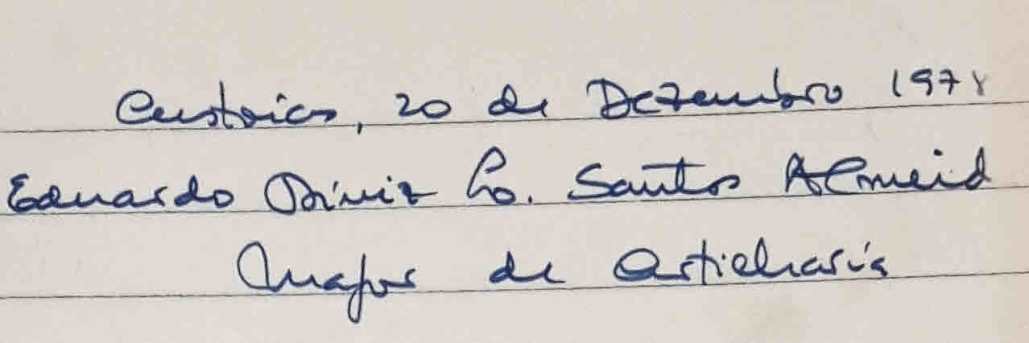 Custoias, 20 de Dezembro 197
Eduardo Diniz Santos Almeid
Major de artilharia